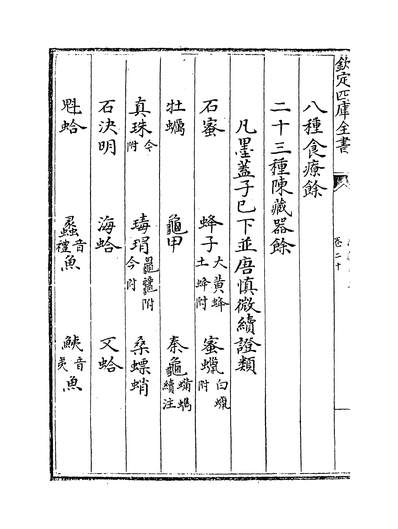 欽定四庫全書
卷二十
八種食療餘
二十三種陳藏器餘
凡墨蓋子已下並唐慎微續證類
石蜜 蜂子 大黃蜂土蜂附 蜜蠟 白蠟附
牡蠣 龜甲 秦龜 蟕蠵續注
真珠 今附 瑇瑁 龜鼊附今附 桑螵蛸
石決明 海蛤 文蛤
魁蛤 蠡音禮魚 鮧音夷魚